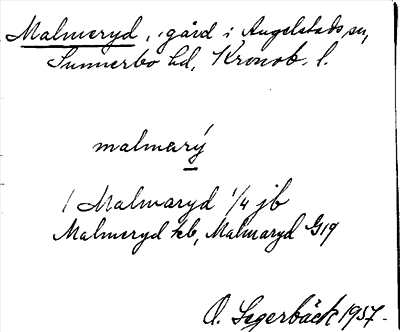 Malmeryd, gård i Angelstads sn,
Sunnerbo hd, Kronob. l.
malmarý
1 Malmaryd 1/4 jb
Malmeryd kb, Malmaryd G19
O. Segerbäck 1937.